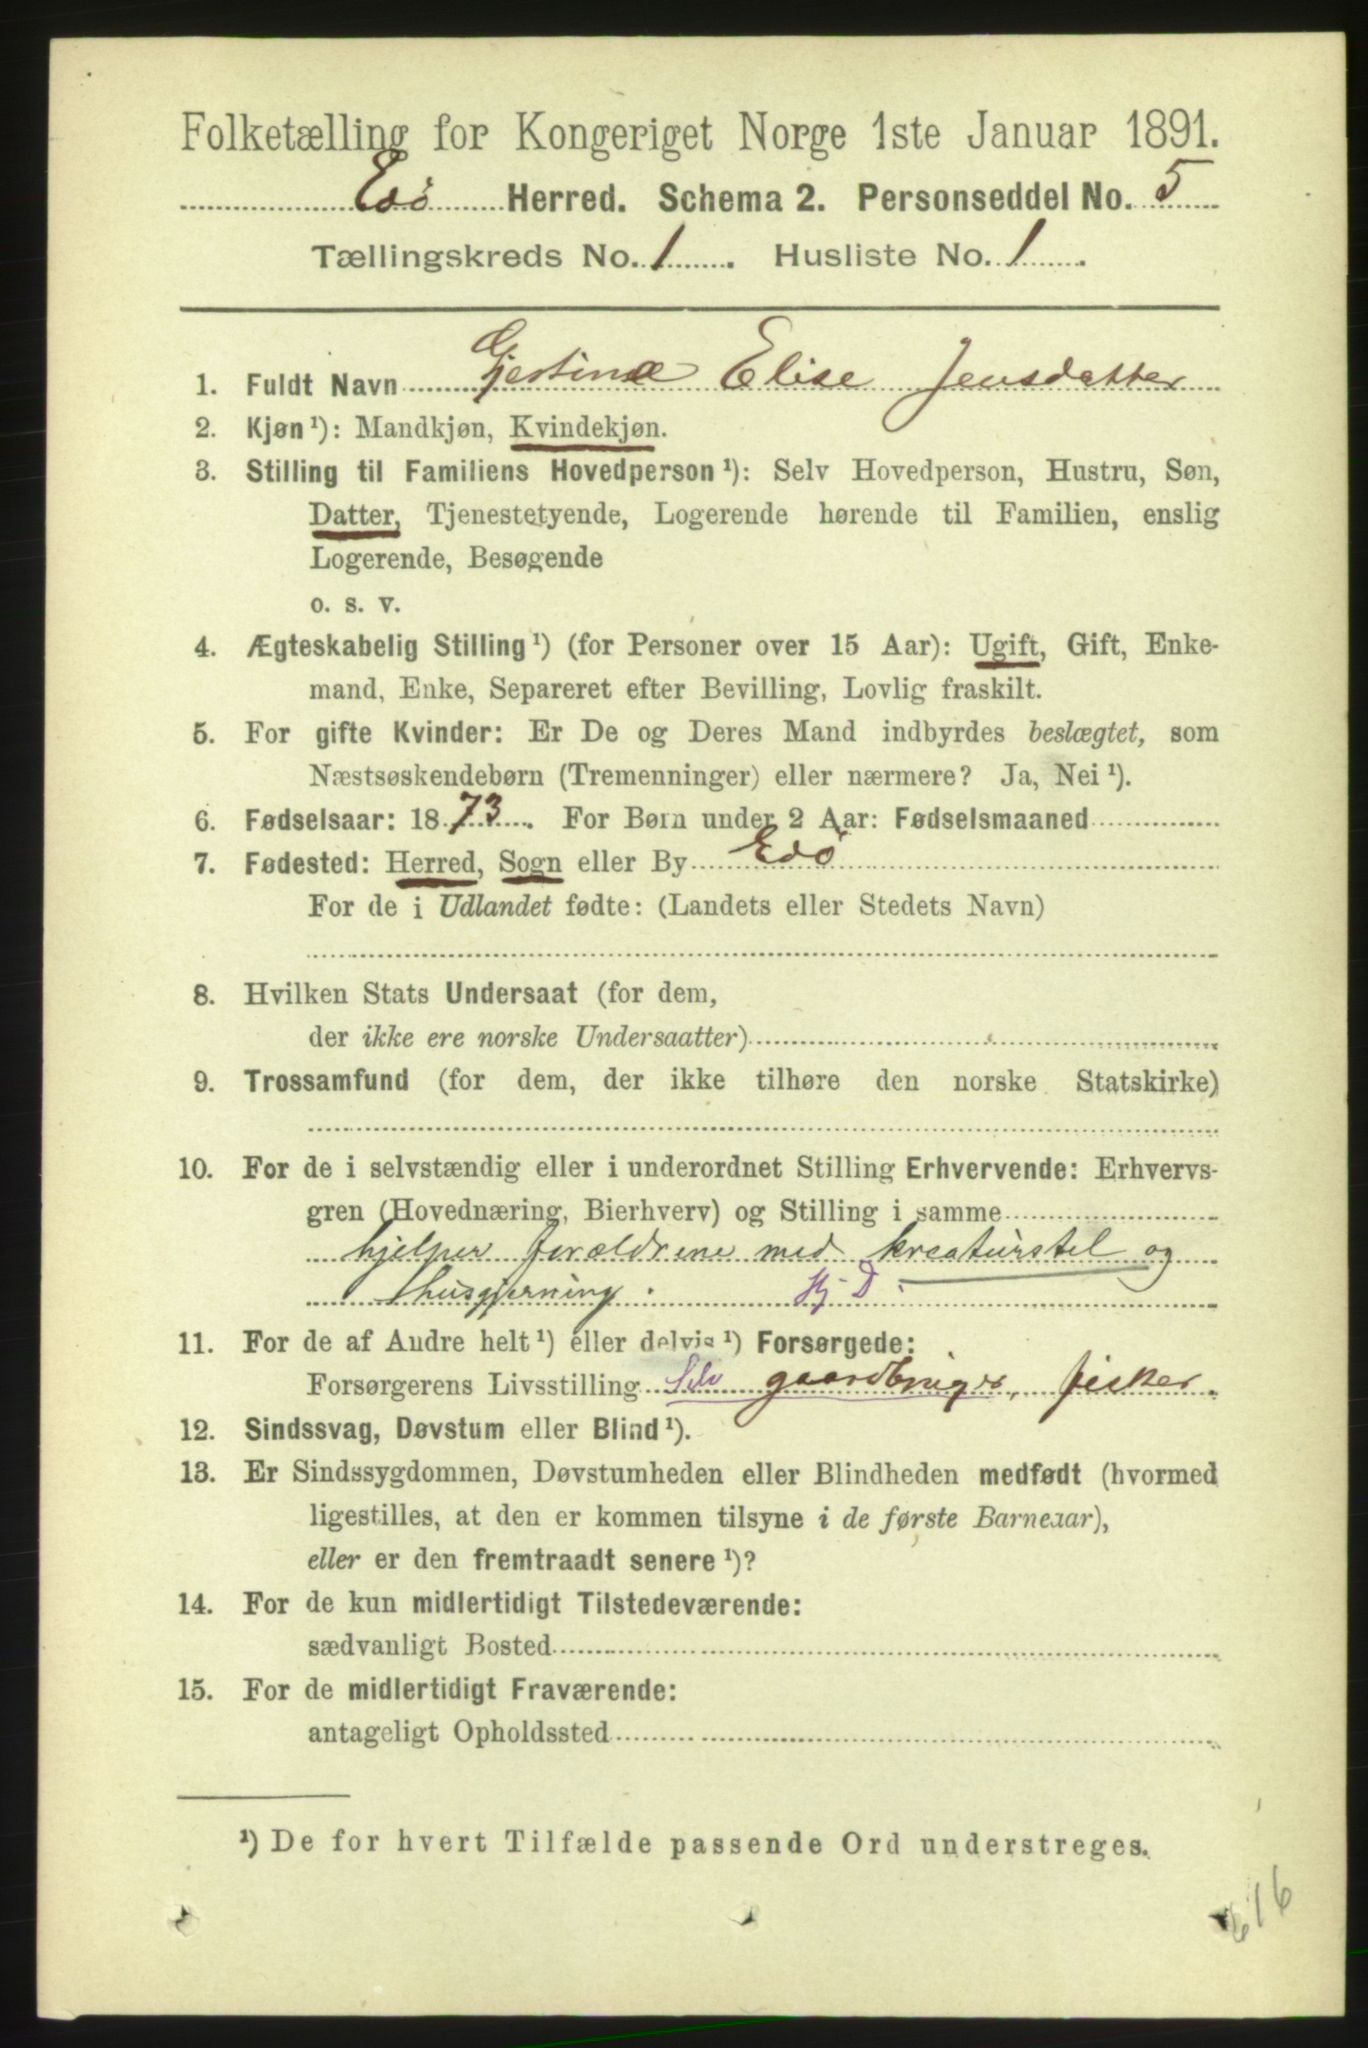 Folketælling for Kongeriget Norge 1ste Januar 1891.
Edø Herred. Schema 2. Personseddel No. 5
Tællingskreds No. 1. Husliste No. 1.
1. Fuldt Navn Gjertine Elise Jensdatter
2. Kjøn¹): Mandkjøn, Kvindekjøn.
3. Stilling til Familiens Hovedperson¹): Selv Hovedperson, Hustru, Søn,
Datter, Tjenestetyende, Logerende hørende til Familien, enslig
Logerende, Besøgende
o. s. v.
4. Ægteskabelig Stilling¹) (for Personer over 15 Aar): Ugift, Gift, Enke-
mand, Enke, Separeret efter Bevilling, Lovlig fraskilt.
5. For gifte Kvinder: Er De og Deres Mand indbyrdes beslægtet, som
Næstsøskendebørn (Tremenninger) eller nærmere? Ja, Nei¹).
6. Fødselsaar: 1873. For Børn under 2 Aar: Fødselsmaaned
7. Fødested: Herred, Sogn eller By Edø
For de i Udlandet fødte: (Landets eller Stedets Navn)
8. Hvilken Stats Undersaat (for dem,
der ikke ere norske Undersaatter)
9. Trossamfund (for dem, der ikke tilhøre den norske Statskirke)
10. For de i selvstændig eller i underordnet Stilling Erhvervende: Erhvervs-
gren (Hovednæring, Bierhverv) og Stilling i samme
hjelper forældrene med kreaturstel og
husgjerning. Hj. D.
11. For de af Andre helt¹) eller delvis¹) Forsørgede:
Forsørgerens Livsstilling Selv gaardbruger, fisker.
12. Sindssvag, Døvstum eller Blind¹).
13. Er Sindssygdommen, Døvstumheden eller Blindheden medfødt (hvormed
ligestilles, at den er kommen tilsyne i de første Barneaar),
eller er den fremtraadt senere¹)?
14. For de kun midlertidigt Tilstedeværende:
sædvanligt Bosted
15. For de midlertidigt Fraværende:
antageligt Opholdssted
¹) De for hvert Tilfælde passende Ord understreges.
616